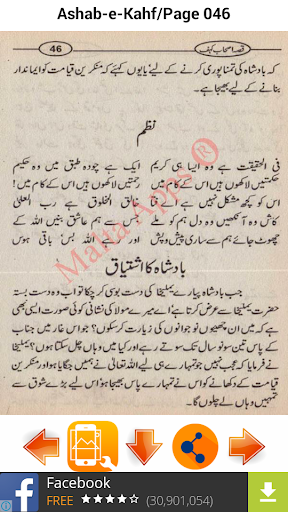 Ashab-e-Kahf/Page 046
46
قصہ اصحاب کہف
کہ بادشاہ کی تمنا پوری کرنے کے لیے یا یوں کہئے کہ منکرین قیامت کو ایماندار
بنانے کے لیے بھیجا ہے۔
نظم
فی الحقیقت ہے وہ ایسا ہی کریم
ایک ہے چودہ طبق میں وہ حکیم
حکمتیں لاکھوں ہیں اس کے کام میں
رحمتیں لاکھوں ہیں اس کے نام میں
اس کو کچھ مشکل نہیں ہے
خالق المخلوق ہے رب العلیٰ
کاش وہ آنکھیں وہ دل ہم کو ملے
جس سے ہم عاشق بنیں اللہ کے
چھوٹ جائے ہم سے ساری پیش و پس
اور رہے اللہ بس باقی ہوس
بادشاہ کا اشتیاق
جب بادشاہ پیارے یملیخا کی دست بوسی کر چکا تو اب وہ دست بستہ
حضرت یملیخا سے عرض کرتا ہے اے میرے یملیخا کوئی صورت ایسی بھی
ہے کہ میں ان چھیوں نوجوانوں کی زیارت کر سکوں؟ جو اس غار میں جناب
کے پاس تین سو نو سال تک سوتے رہے اور کیا میں وہاں چل سکتا ہوں؟ یملیخا
نے فرمایا کہ عجب نہیں جو تمہارے ہی لیے اللہ تعالیٰ نے ہمیں جگایا ہو اور منکرین
قیامت کے دکھانے کو اس نے تمہارے پاس بھیجا ہو اس لیے بڑے شوق سے
تمہیں وہاں لے چلوں گا۔
Malta Apps ®
Facebook
FREE
(30,901,054)